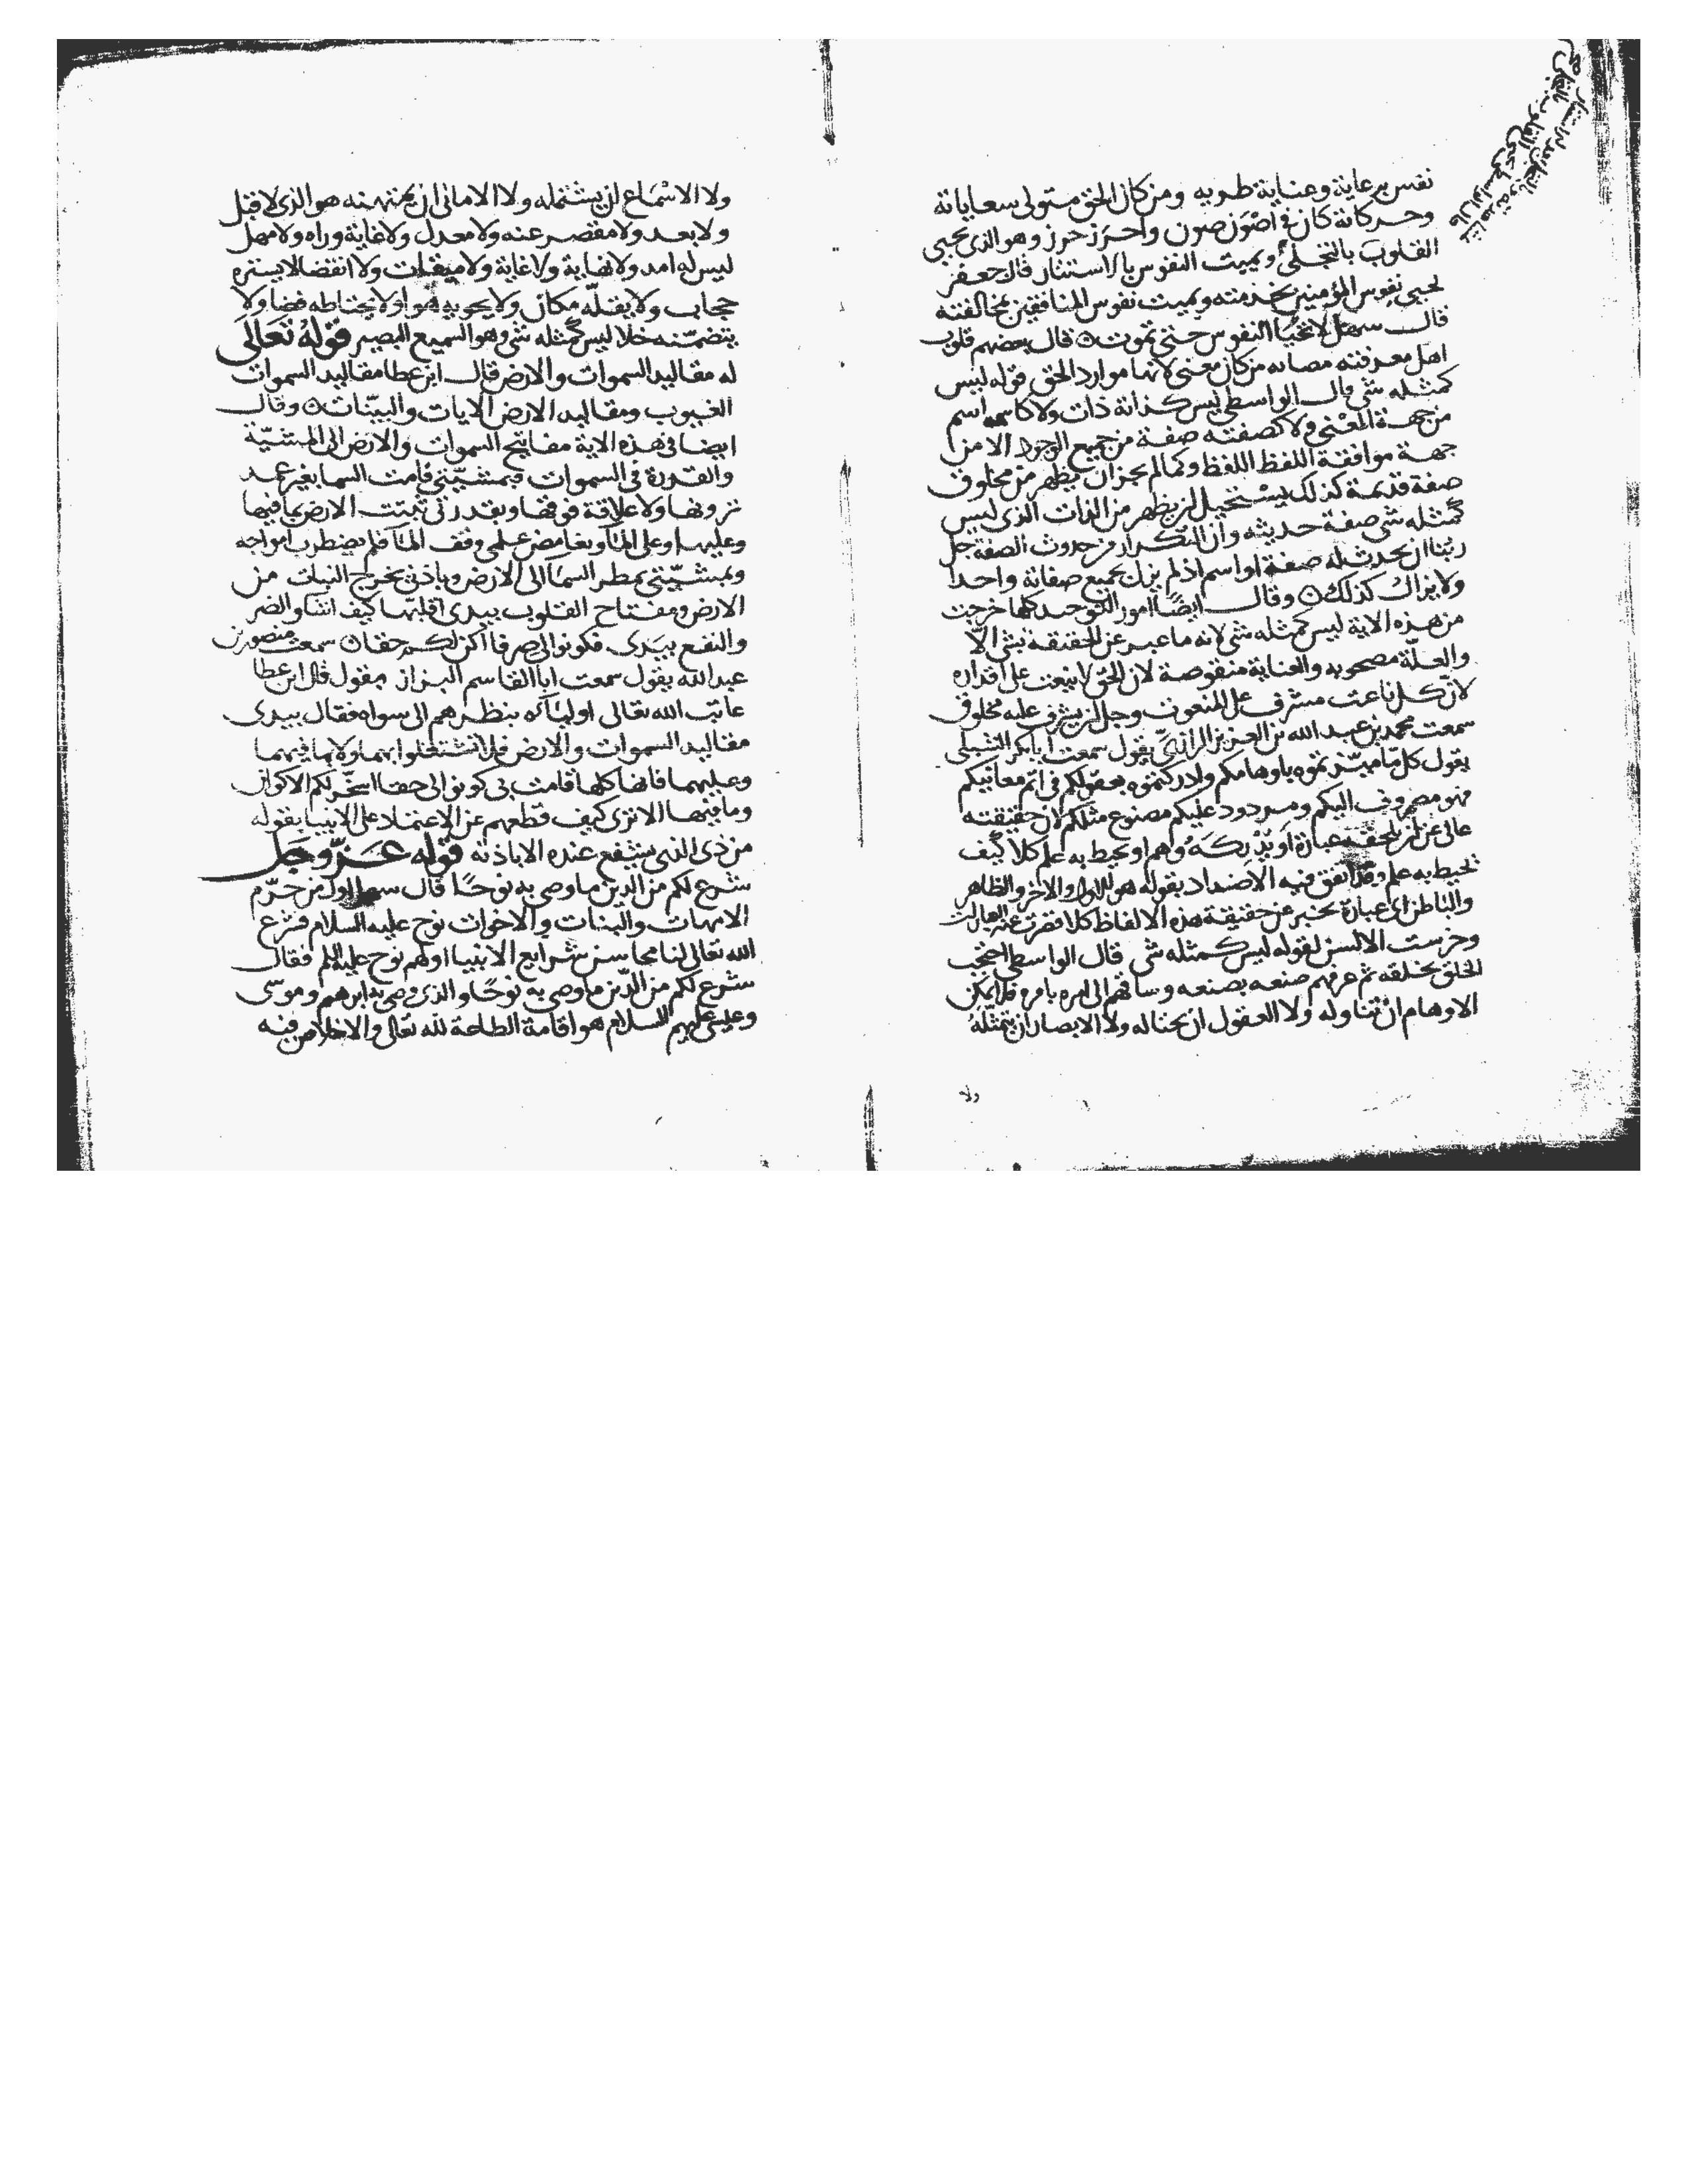 نفس برعاية وعناية طوبه ومن كان الحق متولى سعاياته
وحركاته كان فى اصْوَن صون واحرَز حرز وهو الذى يحيى
القلوب بالتجلى ويميت النفوس بالاستتار قال جعفر
يحيى نفوس المؤمنين بخدمته ويميت نفوس المنافقين بمخالفته
قال سهل لا تحيا النفوس حتى تموت ۝ قال بعضهم قلوب
اهل معرفته مصانه من كان معنى لانها موارد الحق قوله ليس
كمثله شى قال الواسطى ليس كذاته ذات ولا كاسمه اسم
من جهة المعْنى ولا كصفته صفة من جميع الوجوه الا من
جهة موافقة اللفظ اللفظ وكما لم يجز ان يظهر من مخلوق
صفة قديمة كذلك يسْتحيل ان يظهر من الذات الذى ليس
كمثله شى صفة حديثه وان التكرار من حدوث الصفة جل
ربّنا ان يحدث له صفة او اسم اذ لم يزل بجميع صفاته واحدا
ولا يزال كذلك ۝ وقال ايضًا امور التوحيد كلها خرجت
من هذه الاية ليس كمثله شى لانه ما عبر عن الحقيقة بشى الّا
والعلّة مصحوبه والعناية منقوصة لان الحق لا ينعت على اقداره
لانّ كل ناعت مشرف على المنعوت وجل ان يشرف عليه مخلوق
سمعت محمد بن عبد الله بن العزيز الرازىّ يقول سمعت ابا بكر الشبلى
يقول كل مّا ميّزتموه باوهامكم وادركتموه بعقولكم فى اتم معانيكم
فهو مصروف اليكم ومردود عليكم مصنوع مثلكم لان حقيقته
عالى عن ان يلحقه عبارة اَو يدْركَهُ وهم او يحيط به علم كلا كيف
يحيط به علم وقد اتفق فيه الاضداد بقوله هو الاول والاخر والظاهر
والباطن اى عبارة تخبر عن حقيقة هذه الالفاظ كلا قصرت عنه العبارات
وخرست الالسن لقوله ليس كمثله شى قال الواسطى احتجب
الخلق بخلقه ثم عرفهم صنعه بصنعه وساقهم الى امره بامره فلا يمكن
الاوهام انْ تناوله ولا العقول ان يحتاله ولا الابصار ان يتمثّلهُ
ولا
ولا الاسْماع ان يشتمله ولا الامانى ان يمتهنه هو الذى لا قبل
ولا بعد ولا مقصر عنه ولا معدل ولا غاية وراه ولا مهل
ليس له امد ولا نهاية ولا غاية ولا ميقات ولا انقضا لا يستره
حجاب ولا يقلّه مكان ولا يحويه هوا ولا يحتاطه فضا ولا
يتضمّنه خلا ليس كمثله شى وهو السميع البصير قوْلهُ تعَالىَ
له مقاليد السموات والارض قال ابن عطا مقاليد السموات
الغيوب ومقاليد الارض الايات والبيّنات ۝ وقال
ايضا فى هذه الاية مفاتيح السموات والارض الى المشيّة
والقدرة فى السموات فبمشيّتى قامت السما بغير عمد
ترونها ولا علاقة فوقها وبقدرتى ثبتت الارض بما فيها
وعليها وعلى الماّ وبغامض علمى وقف الماّ فلم يضطرب امواجه
وبمشيّتى تمطر السماّ الى الارض وباذنى يخرج النبات من
الارض ومفتاح القلوب بيدى اقلبّها كيف اشا والضر
والنفع بيَدى فكونوا الى صرفا اكن لكم حقا ۝ سمعت منصور بن
عبد الله يقول سمعت اباّ القاسم البزاز يقول قال ابن عطا
عاتب الله تعالى اولياَّه بنظرهم الى سواه فقال بيدى
مقاليد السموات والارض فلا تشتغلوا بهما ولا بما فيهما
وعليهما فانها كلها قامت بى كونوا الى حقا اسخّر لكم الاكوان
وما فيها الا ترى كيف قطعهم عن الاعتماد على الانبيا بقوله
من ذى الذى يشفع عنده الا باذنه قوْله عَزّ وجَل
شرع لكم من الدين ما وصى به نوحًا قال سهل اول من حرّم
الامهات والبنات والاخوات نوح عليه السلام فشرع
الله تعالى لنا محاسن شرايع الانبيا اولهم نوح عليه السلم فقال
شرع لكم من الدّين ما وصى به نوحًا والذى وصى به ابرهيم وموسى
وعيسى عليهم السلام هو اقامة الطاعة لله تعالى والاخلاص فيه